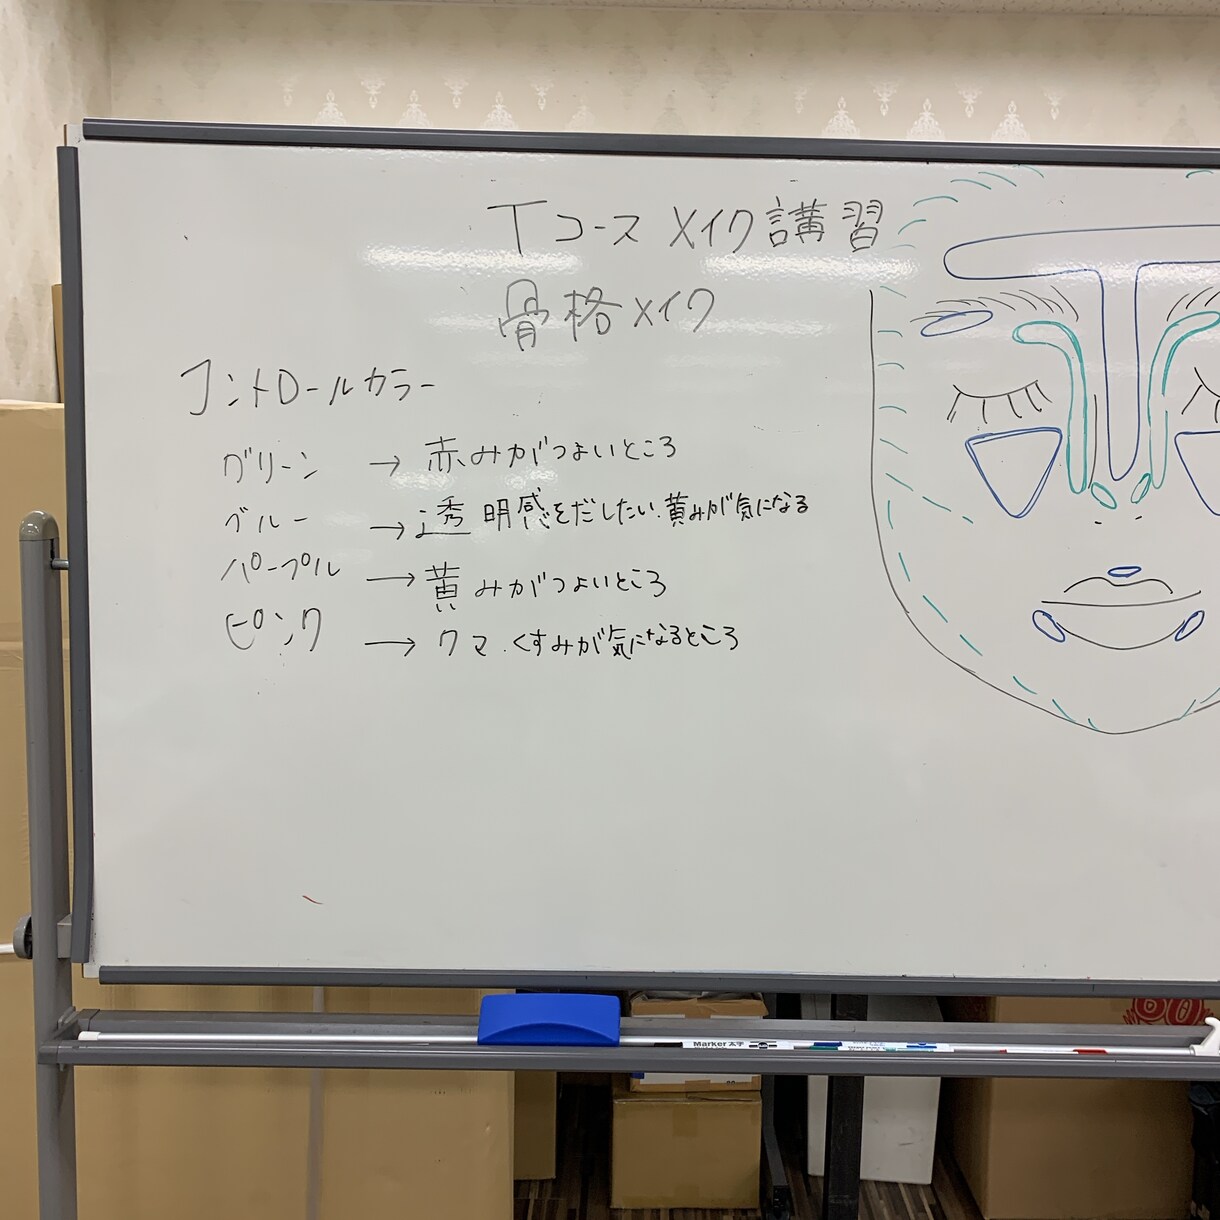 Tコース メイク講習
骨格メイク
コントロールカラー
グリーン → 赤みがつよいところ
ブルー → 透明感をだしたい.黄みが気になる
パープル → 黄みがつよいところ
ピンク → クマ.くすみが気になるところ
Marker 太字